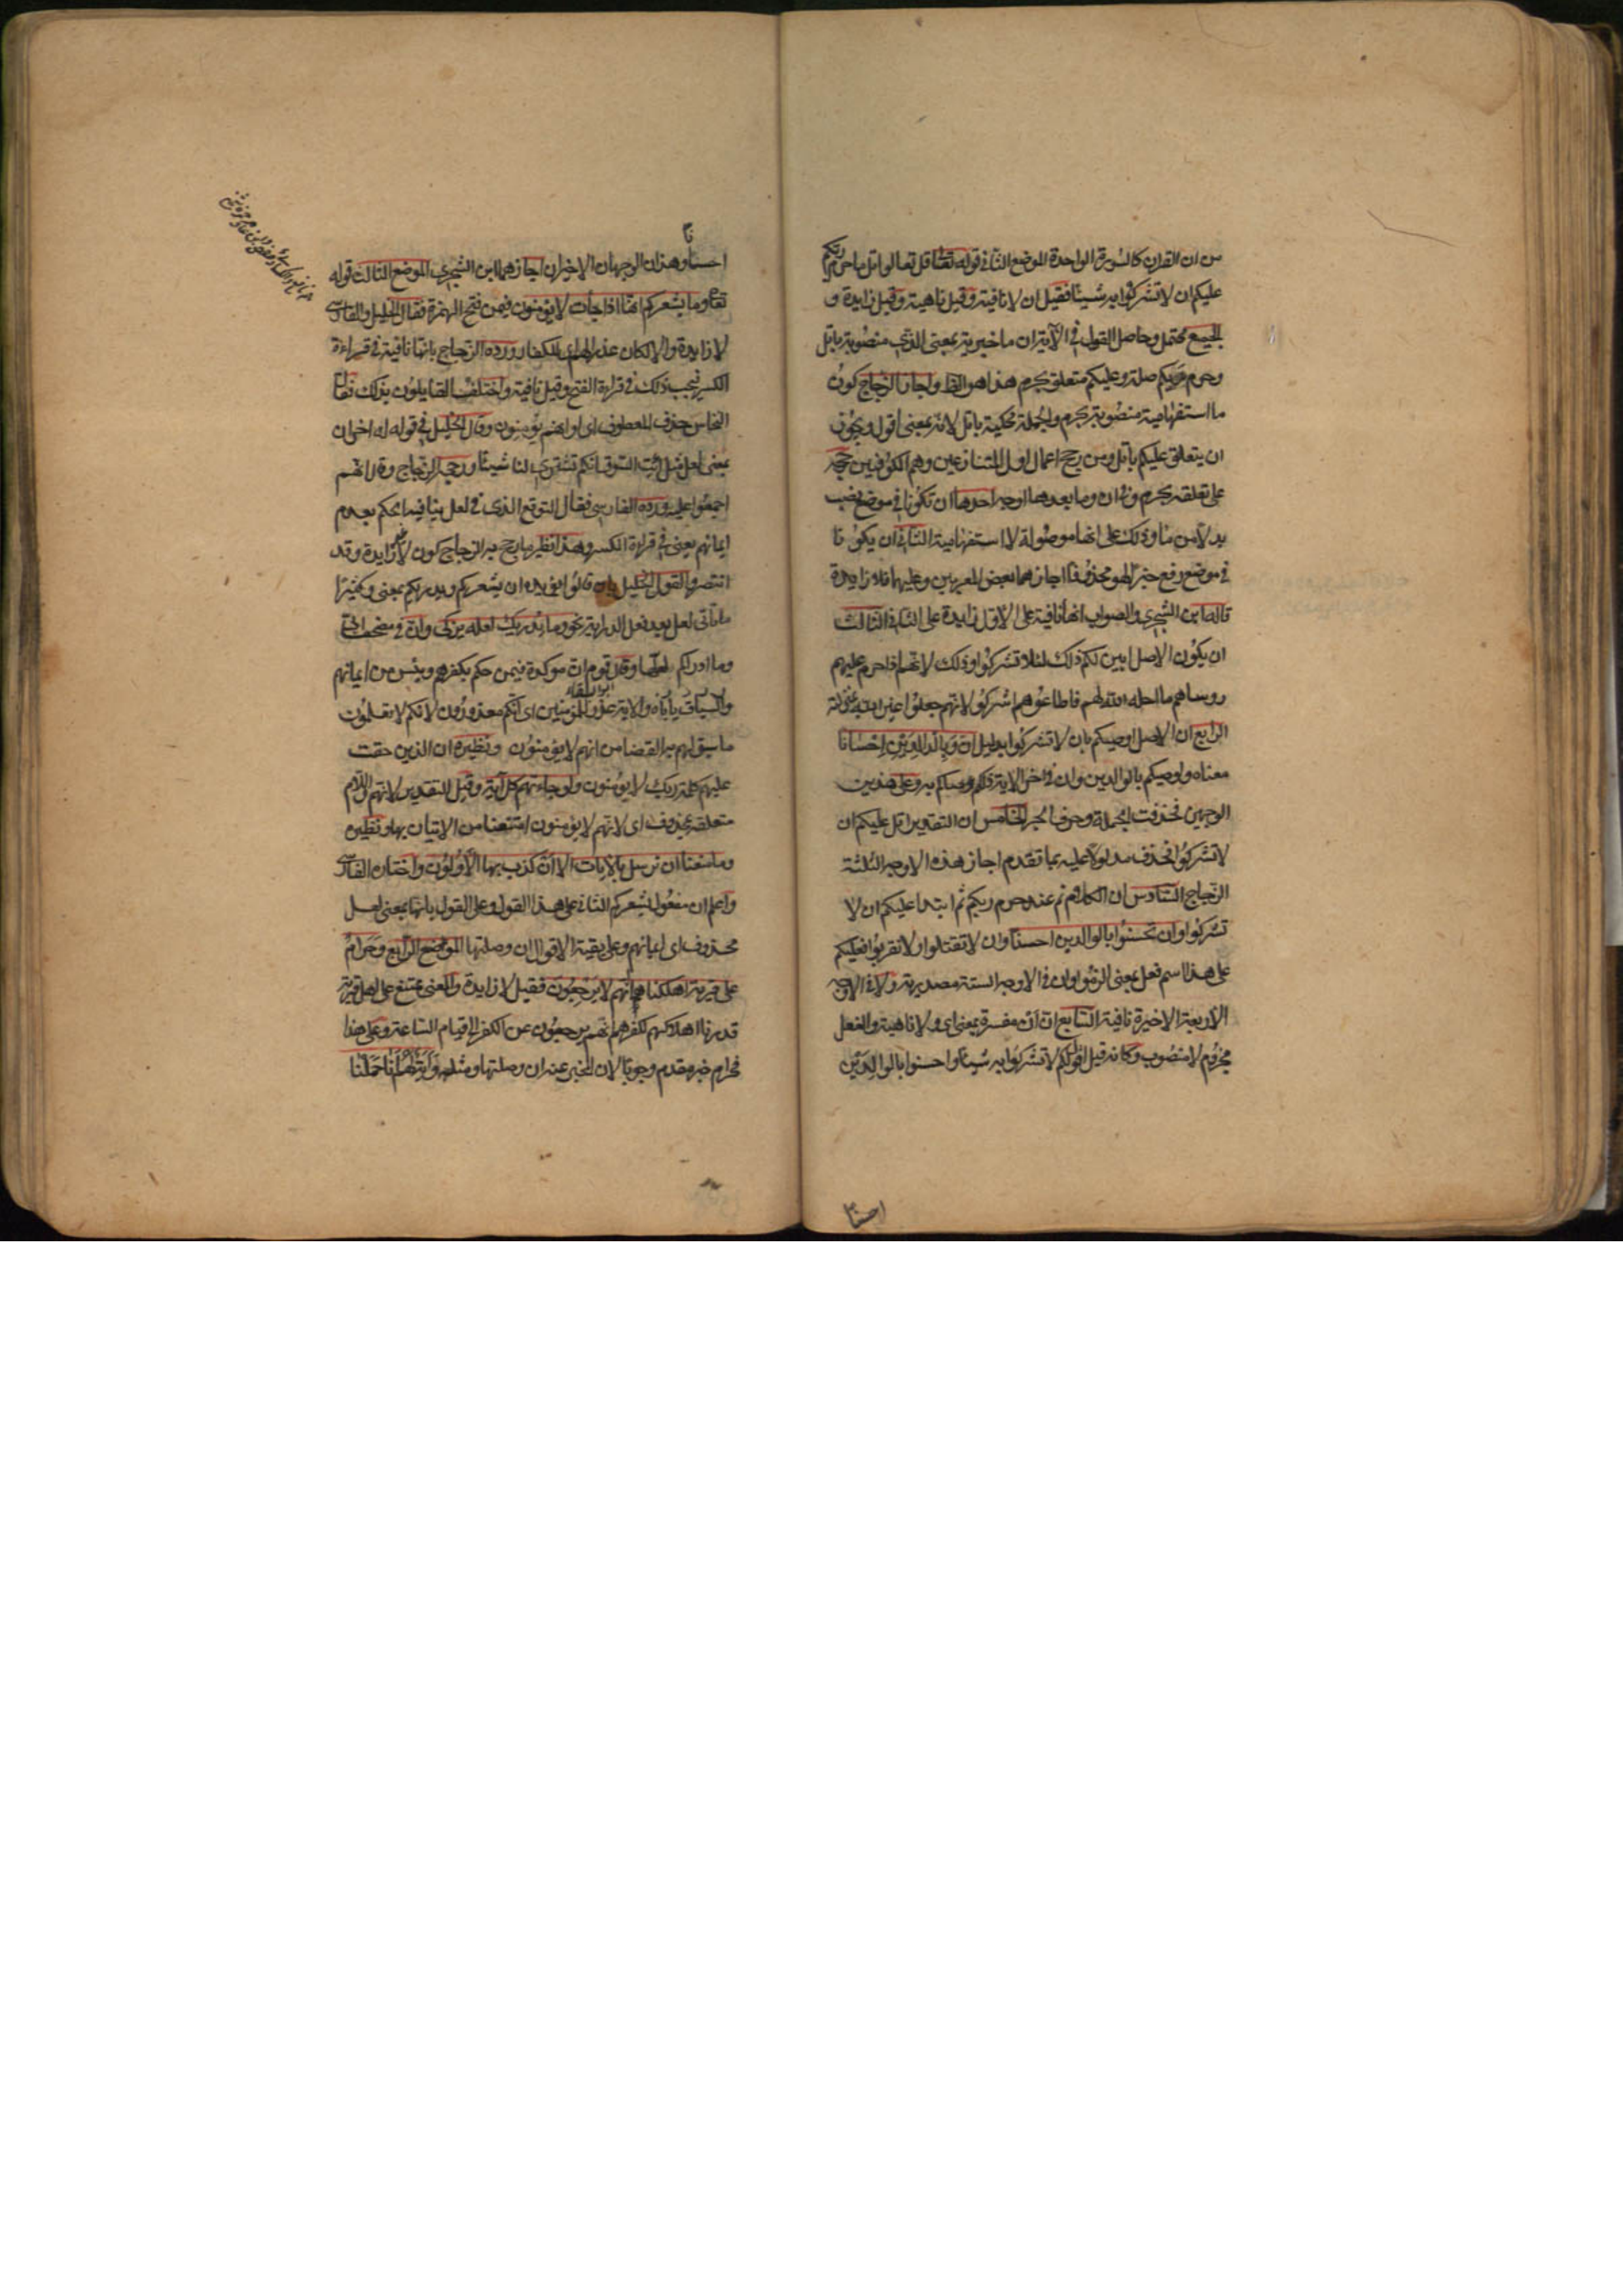 من ان القران كالسورة الواحدة الموضع الثاني قوله تعالى قل تعالوا اتل ما حرم ربكم
عليكم ان لا تشركوا به شيئا فقيل ان لا نافية وقيل ناهية وقيل زايدة و
الجميع محتمل وحاصل القول في الآية ان ما خبرية بمعنى الذي منصوبة باتل
وحرم ربكم صلة وعليكم متعلق بحرم هذا هو الظ واجاز الزجاج كون
ما استفهامية منصوبة بحرم والجملة محكية باتل لانه بمعنى اقول ويجوز
ان يتعلق عليكم باتل ومن رجح اعمال اول المتنازعين وهم الكوفيين رجحه
على تعلقه بحرم وفي ان وما بعدها اوجه احدها ان تكونا في موضع نصب
بدلا من ما وذلك على انها موصولة لا استفهامية الثاني ان يكونا
في موضع رفع خبرا لهو محذوفا اجازهما بعض المعربين وعليهما فلا زايدة
قاله ابن الشجري والصواب انها نافية على الاول زايدة على الثاني الثالث
ان يكون الاصل ابين لكم ذلك لئلا تشركوا وذلك لانهم اذا حرم عليهم
روساهم ما احله الله لهم فاطاعوهم اشركوا لانهم جعلوا غير الله بمنزلته
الرابع ان الاصل اوصيكم بان لا تشركوا بدليل ان وبالوالدين احسانا
معناه واوصيكم بالوالدين وان في اخر الاية ذلكم وصيكم به وعلى هذين
الوجهين فحذفت الجملة وحرف الجر الخامس ان التقدير اتل عليكم ان
لا تشركوا فحذف مدلولا عليه بما تقدم اجاز هذه الاوجه الثلثة
الزجاج السادس ان الكلام تم عند حرم ربكم ثم ابتدا عليكم ان لا
تشركوا وان تحسنوا بالوالدين احسنا وان لا تقتلوا ولا تقربوا فعليكم
على هذا اسم فعل بمعنى الزموا وان في الاوجه الستة مصدرية ولا في الاوجه
الاربعة الاخيرة نافية السابع ان ان مفسرة بمعنى اي ولا ناهية والفعل
مجزوم لا منصوب وكانه قيل اقول لكم لا تشركوا به شيئا واحسنوا بالوالدين
احسنا
احسنا وهذان الوجهان الاخيران اجازهما ابن الشجري الموضع الثالث قوله
تعالى وما يشعركم انها اذا جات لا يؤمنون فيمن فتح الهمزة فقال الخليل والفارسي
لا زايدة والا لكان عذرا للكفار ورده الزجاج بانها نافية في قراءة
الكسر فيجب ذلك في قراءة الفتح وقيل نافية واختلف القايلون بذلك فقال
النحاس حذف المعطوف اي او انهم يؤمنون وقال الخليل في قوله له اخر ان
بمعنى لعل مثل ايت السوق انكم تشتري لنا شيئا ورجحه الزجاج وقال انهم
اجمعوا عليه ورده الفارسي فقال التوقع الذي في لعل ينافيه الحكم بعدم
ايمانهم يعني في قراءة الكسر وهذا نظير ما رجح به الزجاج كون لا غير زايدة وقد
انتصروا لقول الخليل بان قالوا يؤيده ان يشعركم ويدريكم بمعنى وكثيرا
ما تاتي لعل بعد فعل الدراية نحو وما يدريك لعله يزكى وان في مصحف ابي
وما ادراكم لعلها وقال قوم ان موكدة فيمن حكم بكفرهم ويئس من ايمانهم
والسياق ياباه والاية عذر للمؤمنين اي انكم معذورون لانكم لا تعلمون
ما سبق لهم به القضا من انهم لا يؤمنون ونظيره ان الذين حقت
عليهم كلمة ربك لا يؤمنون ولو جاءتهم كل آية وقيل التقدير لانهم واللام
متعلقة بمحذوف اي لانهم لا يؤمنون امتنعنا من الاتيان بها ونظيره
وما منعنا ان نرسل بالايات الا ان كذب بها الاولون واختاره الفارسي
واعلم ان مفعول يشعركم الثاني على هذا القول وعلى القول بانها بمعنى لعل
محذوف اي ايمانهم وعلى بقية الاقوال ان وصلتها الموضع الرابع وحرام
على قرية اهلكناها انهم لا يرجعون فقيل لا زايدة والمعنى ممتنع على اهل قرية
قدرنا اهلاكهم لكفرهم انهم يرجعون عن الكفر الى قيام الساعة وعلى هذا
فحرام خبر مقدم وجوبا لان المخبر عنه ان وصلتها ومثله وآية لهم انا حملنا